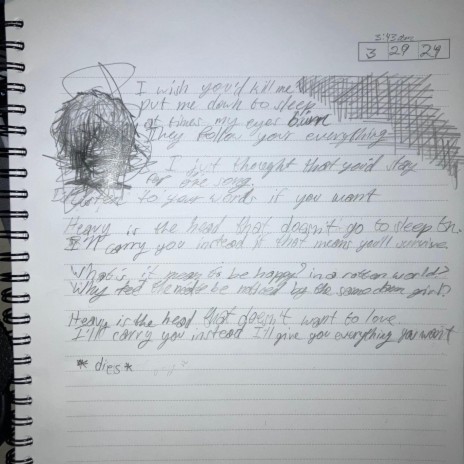 3:43am
3 29 24
I wish you'd kill me
put me down to sleep
at times my eyes burn
They follow your everything
I just thought that you'd stay
for one song
to your words if you want
Heavy is the head that doesn't go to sleep
I'll carry you instead if that means you'll survive
What's it mean to be happy? in a rotten world?
Why be by the same
Heavy is the head that doesn't want to love
I'll carry you instead I'll give you everything you want
*dies*